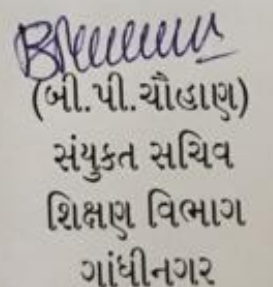 (બી.પી.ચૌહાણ)
સંયુકત સચિવ
શિક્ષણ વિભાગ
ગાંધીનગર